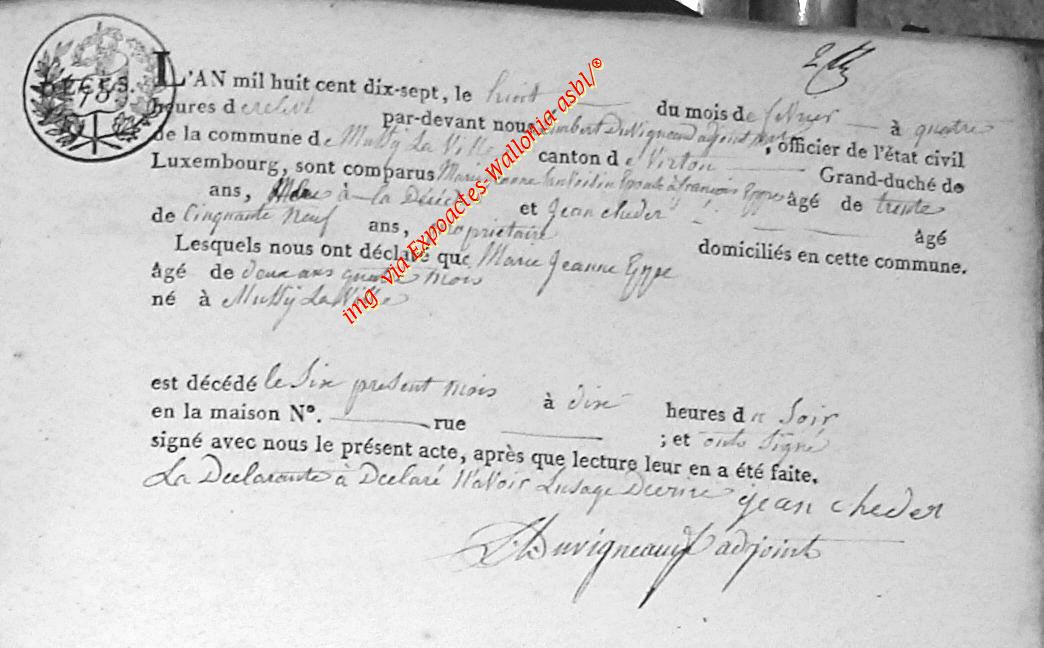 L'AN mil huit cent dix-sept, le huit du mois de fevrier à quatre
heures de relevé par-devant nous Lambert Duvigneaud adjoint, officier de l'état civil
de la commune de Mussy La Ville canton de Virton Grand-duché de
Luxembourg, sont comparus Marie Jeanne Epouse à françois Eppe âgé de trente
ans, à la Décédée et Jean cheder âgé
de Cinquante Neuf ans, propriétaire domiciliés en cette commune.
Lesquels nous ont déclaré que Marie Jeanne Eppe
âgé de deux ans quatre mois
né à Mussy La Ville
est décédé le Six present mois à dix heures du Soir
en la maison N°. rue ; et onts Signé
signé avec nous le présent acte, après que lecture leur en a été faite.
La Declarante à Declaré N'avoir Lusage Decrire jean cheder
Duvigneaud adjoint
img via Expoactes-Wallonia asbl/®